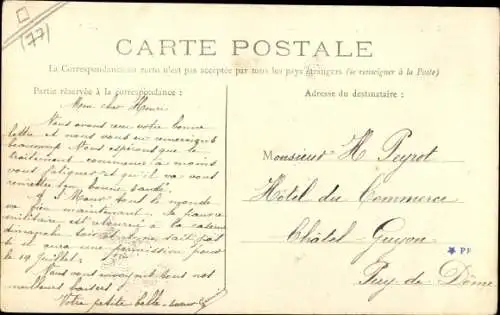 (77)
CARTE POSTALE
La Correspondance au recto n'est pas acceptée par tous les pays étrangers (se renseigner à la Poste)
Partie réservée à la correspondance :
Adresse du destinataire :
Mon cher Henri
Nous avons reçu votre bonne
lettre et nous vous en remercions
beaucoup Nous espérons que le
traitement commence à moins
vous fatiguer et qu'il va vous
remettre en bonne santé.
A St Maur tout le monde
va bien maintenant. Le pauvre
militaire est retourné à la caserne
dimanche soir et ne sait pas
s'il aura une permission pour
le 14 Juillet.
Nous vous envoyons tous nos
meilleurs baisers
Votre petite belle-sœur
Monsieur H Peyrot
Hôtel du Commerce
Châtel-Guyon
Puy-de-Dôme
PF